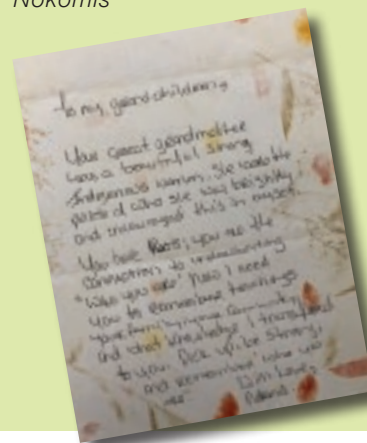 Nokomis
To my grandchildren,
Your Great grandmother
was a beautiful strong
Indigenous woman. She was the
proud of who she was
and encouraged this in
You have Roots; you are the
connection to understanding
"Who you are" Now I need
you to remember teachings
your family, community
and what knowledge I transferred
to you. be strong,
and remember who you
are" With Love,